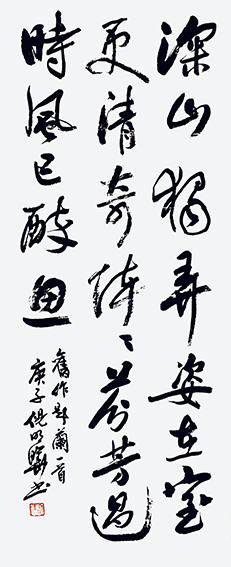 深山獨弄姿在室
更清奇陣〻芬芳過
時風已醉魚
舊作題蘭一首
庚子倪明  書